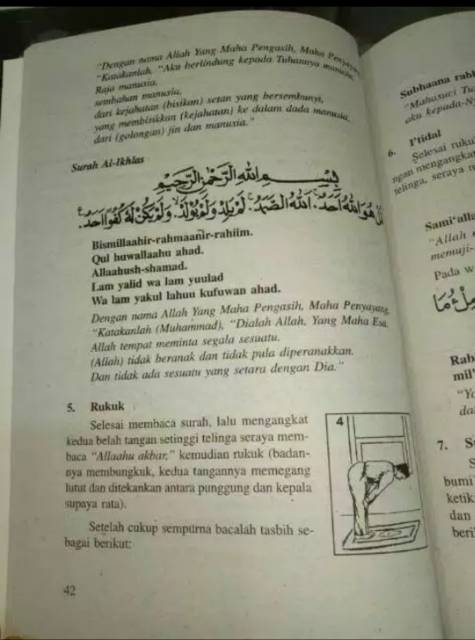 "Dengan nama Allah Yang Maha Pengasih, Maha Penyayang
"Katakanlah, "Aku berlindung kepada Tuhannya manusia,
Raja manusia,
sembahan manusia,
dari kejahatan (bisikan) setan yang bersembunyi,
yang membisikkan (kejahatan) ke dalam dada manusia,
dari (golongan) jin dan manusia."
Surah Al-Ikhlas
بِسْمِ اللهِ الرَّحْمٰنِ الرَّحِيْمِ
هُوَ اللهُ اَحَدٌ. اَللهُ الصَّمَدُ. لَمْ يَلِدْ وَلَمْ يُوْلَدْ. وَلَمْ يَكُنْ لَّهُ كُفُوًا اَحَدٌ.
Bismillaahir-rahmaanir-rahiim.
Qul huwallaahu ahad.
Allaahush-shamad.
Lam yalid wa lam yuulad
Wa lam yakul lahuu kufuwan ahad.
Dengan nama Allah Yang Maha Pengasih, Maha Penyayang
"Katakanlah (Muhammad), "Dialah Allah, Yang Maha Esa.
Allah tempat meminta segala sesuatu.
(Allah) tidak beranak dan tidak pula diperanakkan.
Dan tidak ada sesuatu yang setara dengan Dia."
5. Rukuk
Selesai membaca surah, lalu mengangkat
kedua belah tangan setinggi telinga seraya mem-
baca "Allaahu akbar," kemudian rukuk (badan-
nya membungkuk, kedua tangannya memegang
lutut dan ditekankan antara punggung dan kepala
supaya rata).
Setelah cukup sempurna bacalah tasbih se-
bagai berikut:
4
42
Subhaana rabb
"Mahasuci Tu
aku kepada-N
6. I'tidal
Selesai ruku
ngan mengangkat
telinga, seraya m
Sami'alla
"Allah
memuji-
Pada w
Rab
mil'
"Yo
da
7. S
S
bumi
ketik
dan
beri